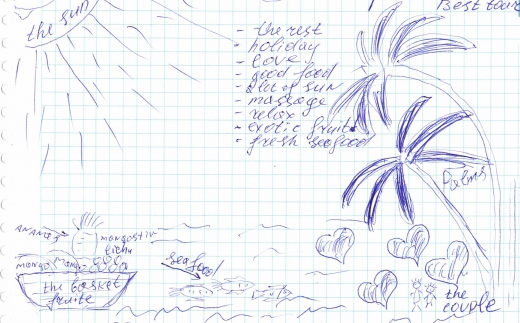 Best tour
the sun
- the rest
- holiday
- love
- good food
- a lot of sun
- massage
- relax
- exotic fruits
- fresh seafood
Palms
ananas
mangostin
lichi
mango
seafood
the basket
fruite
the
couple